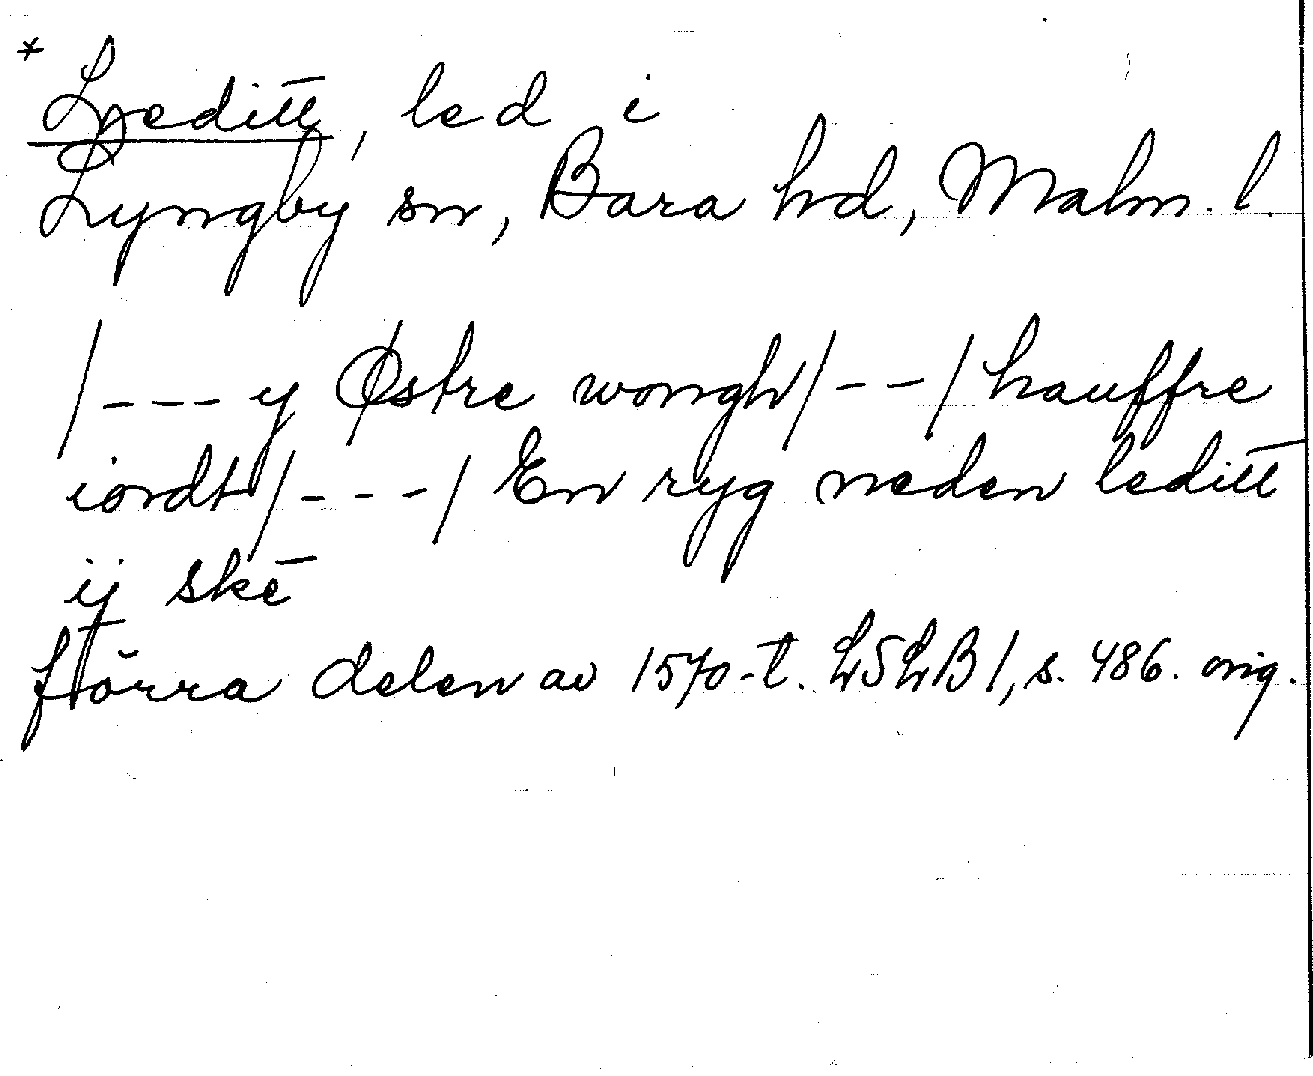 * Leditt̄, led i
Lyngby sn, Bara hd, Malm. l.
/---y Østre wongh/--/hauffre
iordt/---/ En ryg neden leditt̄
ij skē
förra delen av 1570-t. LSLB 1, s. 486. orig.